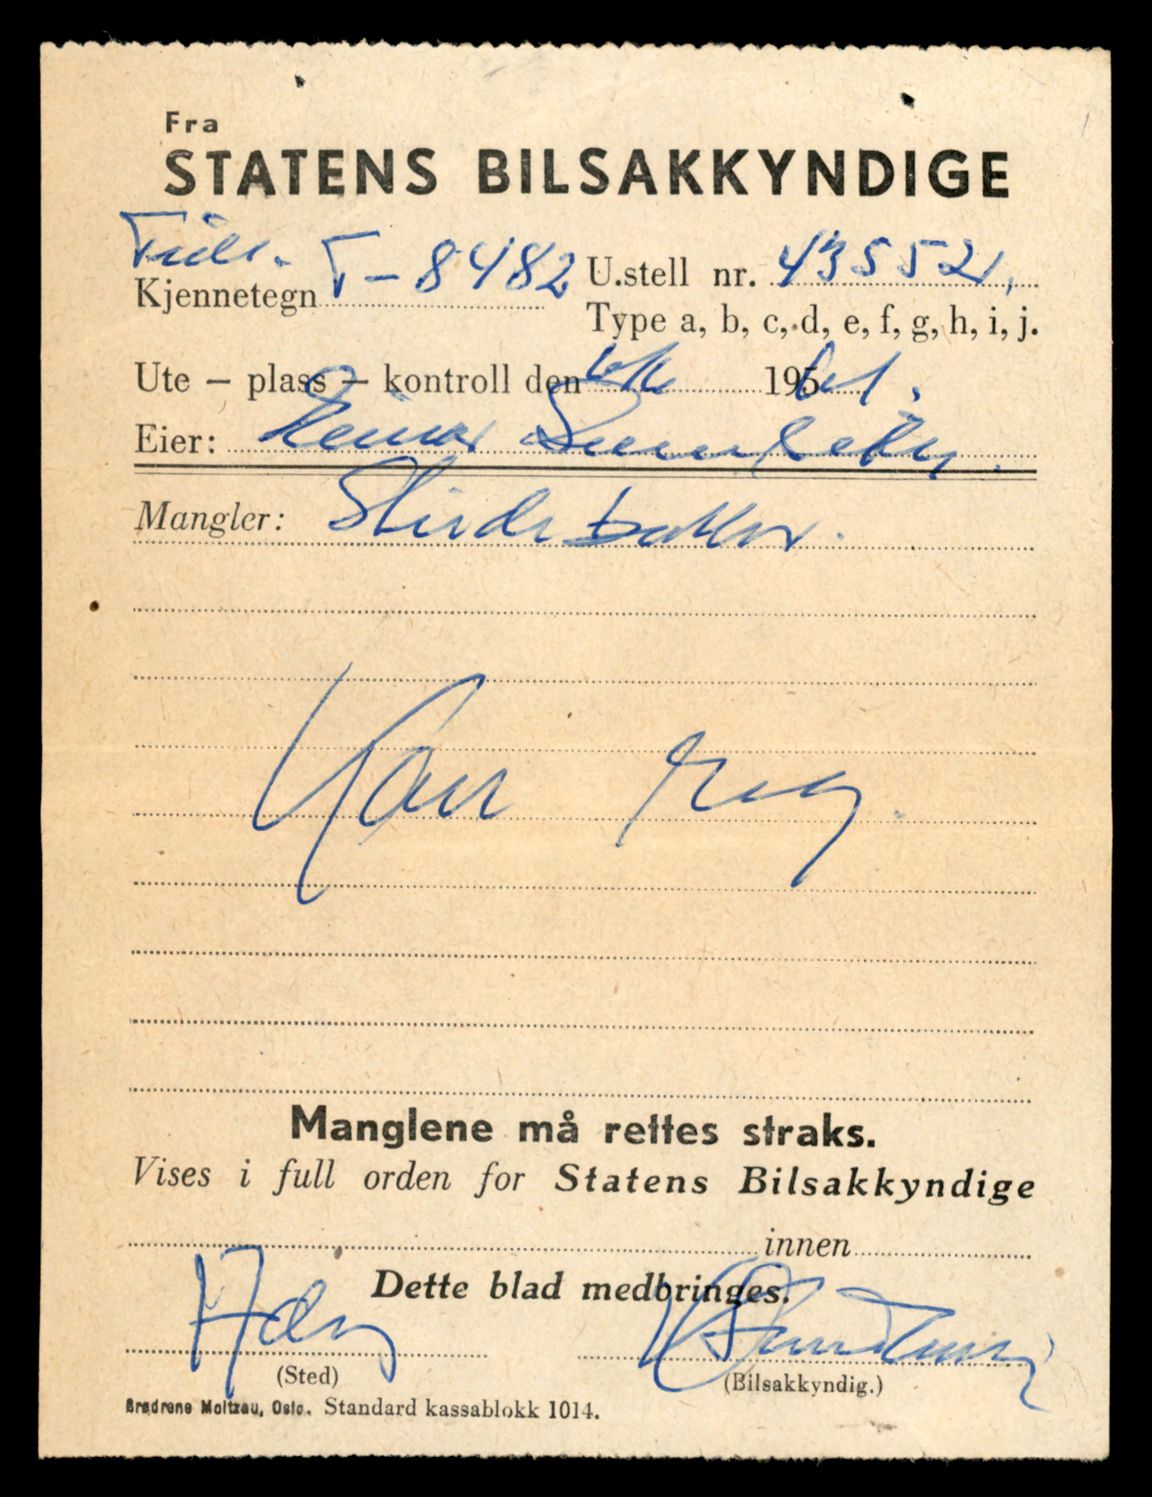 Fra
STATENS BILSAKKYNDIGE
Kjennetegn T-8482 U.stell nr. 435521.
Type a, b, c, d, e, f, g, h, i, j.
Ute – plass – kontroll den 195 61.
Eier: Einar
Mangler:
Kan reg.
Manglene må rettes straks.
Vises i full orden for Statens Bilsakkyndige
innen
Dette blad medbringes.
(Sted) (Bilsakkyndig.)
Brødrene Moltzau, Oslo. Standard kassablokk 1014.